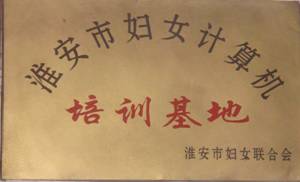 淮安市妇女计算机
培训基地
淮安市妇女联合会